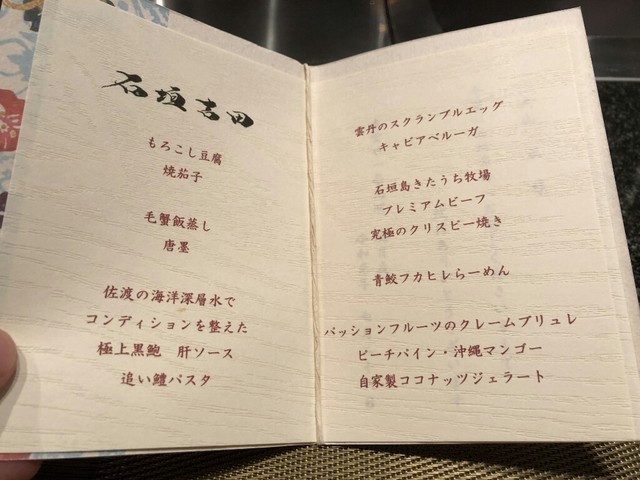 石垣吉田
もろこし豆腐
焼茄子
毛蟹飯蒸し
唐墨
佐渡の海洋深層水で
コンディションを整えた
極上黒鮑 肝ソース
追い鱧パスタ
雲丹のスクランブルエッグ
キャビアベルーガ
石垣島きたうち牧場
プレミアムビーフ
究極のクリスピー焼き
青鮫フカヒレらーめん
パッションフルーツのクレームブリュレ
ピーチパイン・沖縄マンゴー
自家製ココナッツジェラート